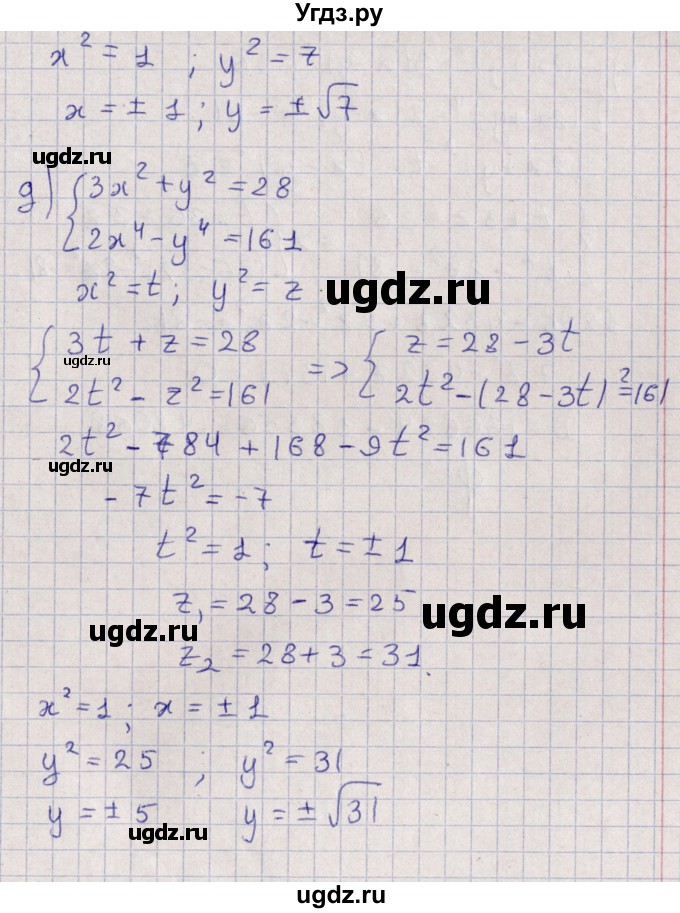 Угдз.ру
x² = 1 ; y² = 7
x = ± 1 ; y = ± √7
ugdz.ru
g) { 3x² + y² = 28
2x⁴ - y⁴ = 161
x² = t ; y² = z
ugdz.ru
{ 3t + z = 28 => { z = 28 - 3t
ugdz.ru
2t² - z² = 161 2t² - (28 - 3t)² = 161
2t² - 784 + 168 - 9t² = 161
ugdz.ru
- 7t² = -7
t² = 1 ; t = ± 1
z₁ = 28 - 3 = 25
ugdz.ru
ugdz.ru
z₂ = 28 + 3 = 31.
x² = 1 ; x = ± 1
y² = 25 ; y² = 31
y = ± 5 y = ± √31
ugdz.ru
ugdz.ru